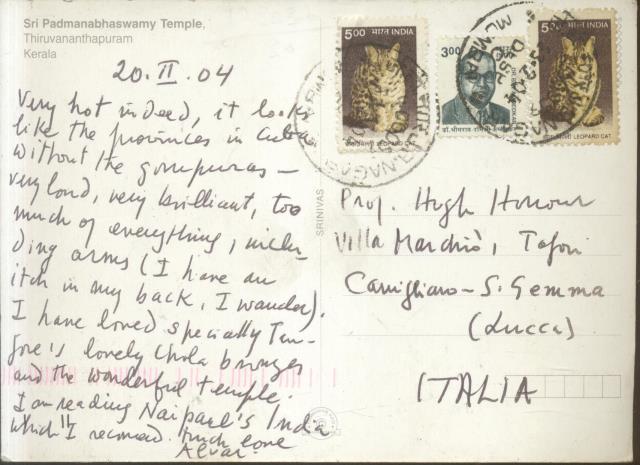 Sri Padmanabhaswamy Temple,
Thiruvananthapuram
Kerala
20.II.04
Very hot indeed, it looks
like the provinces in Cuba
without the gompuras –
very loud, very brilliant, too
much of everything, inclu-
ding arms (I have an
itch in my back, I wander).
I have loved specially Tan-
jore's lovely Chola bronzes
and the wonderful temple.
I am reading Naipaul's India
which I recomend. Much love
Alvar.
5.00 भारत INDIA
LEOPARD CAT
3.00
5.00 भारत INDIA
LEOPARD CAT
SRINIVAS
Prof. Hugh Honour
Villa Marchiò, Tofori
Camigliano – S. Gemma
(Lucca)
ITALIA